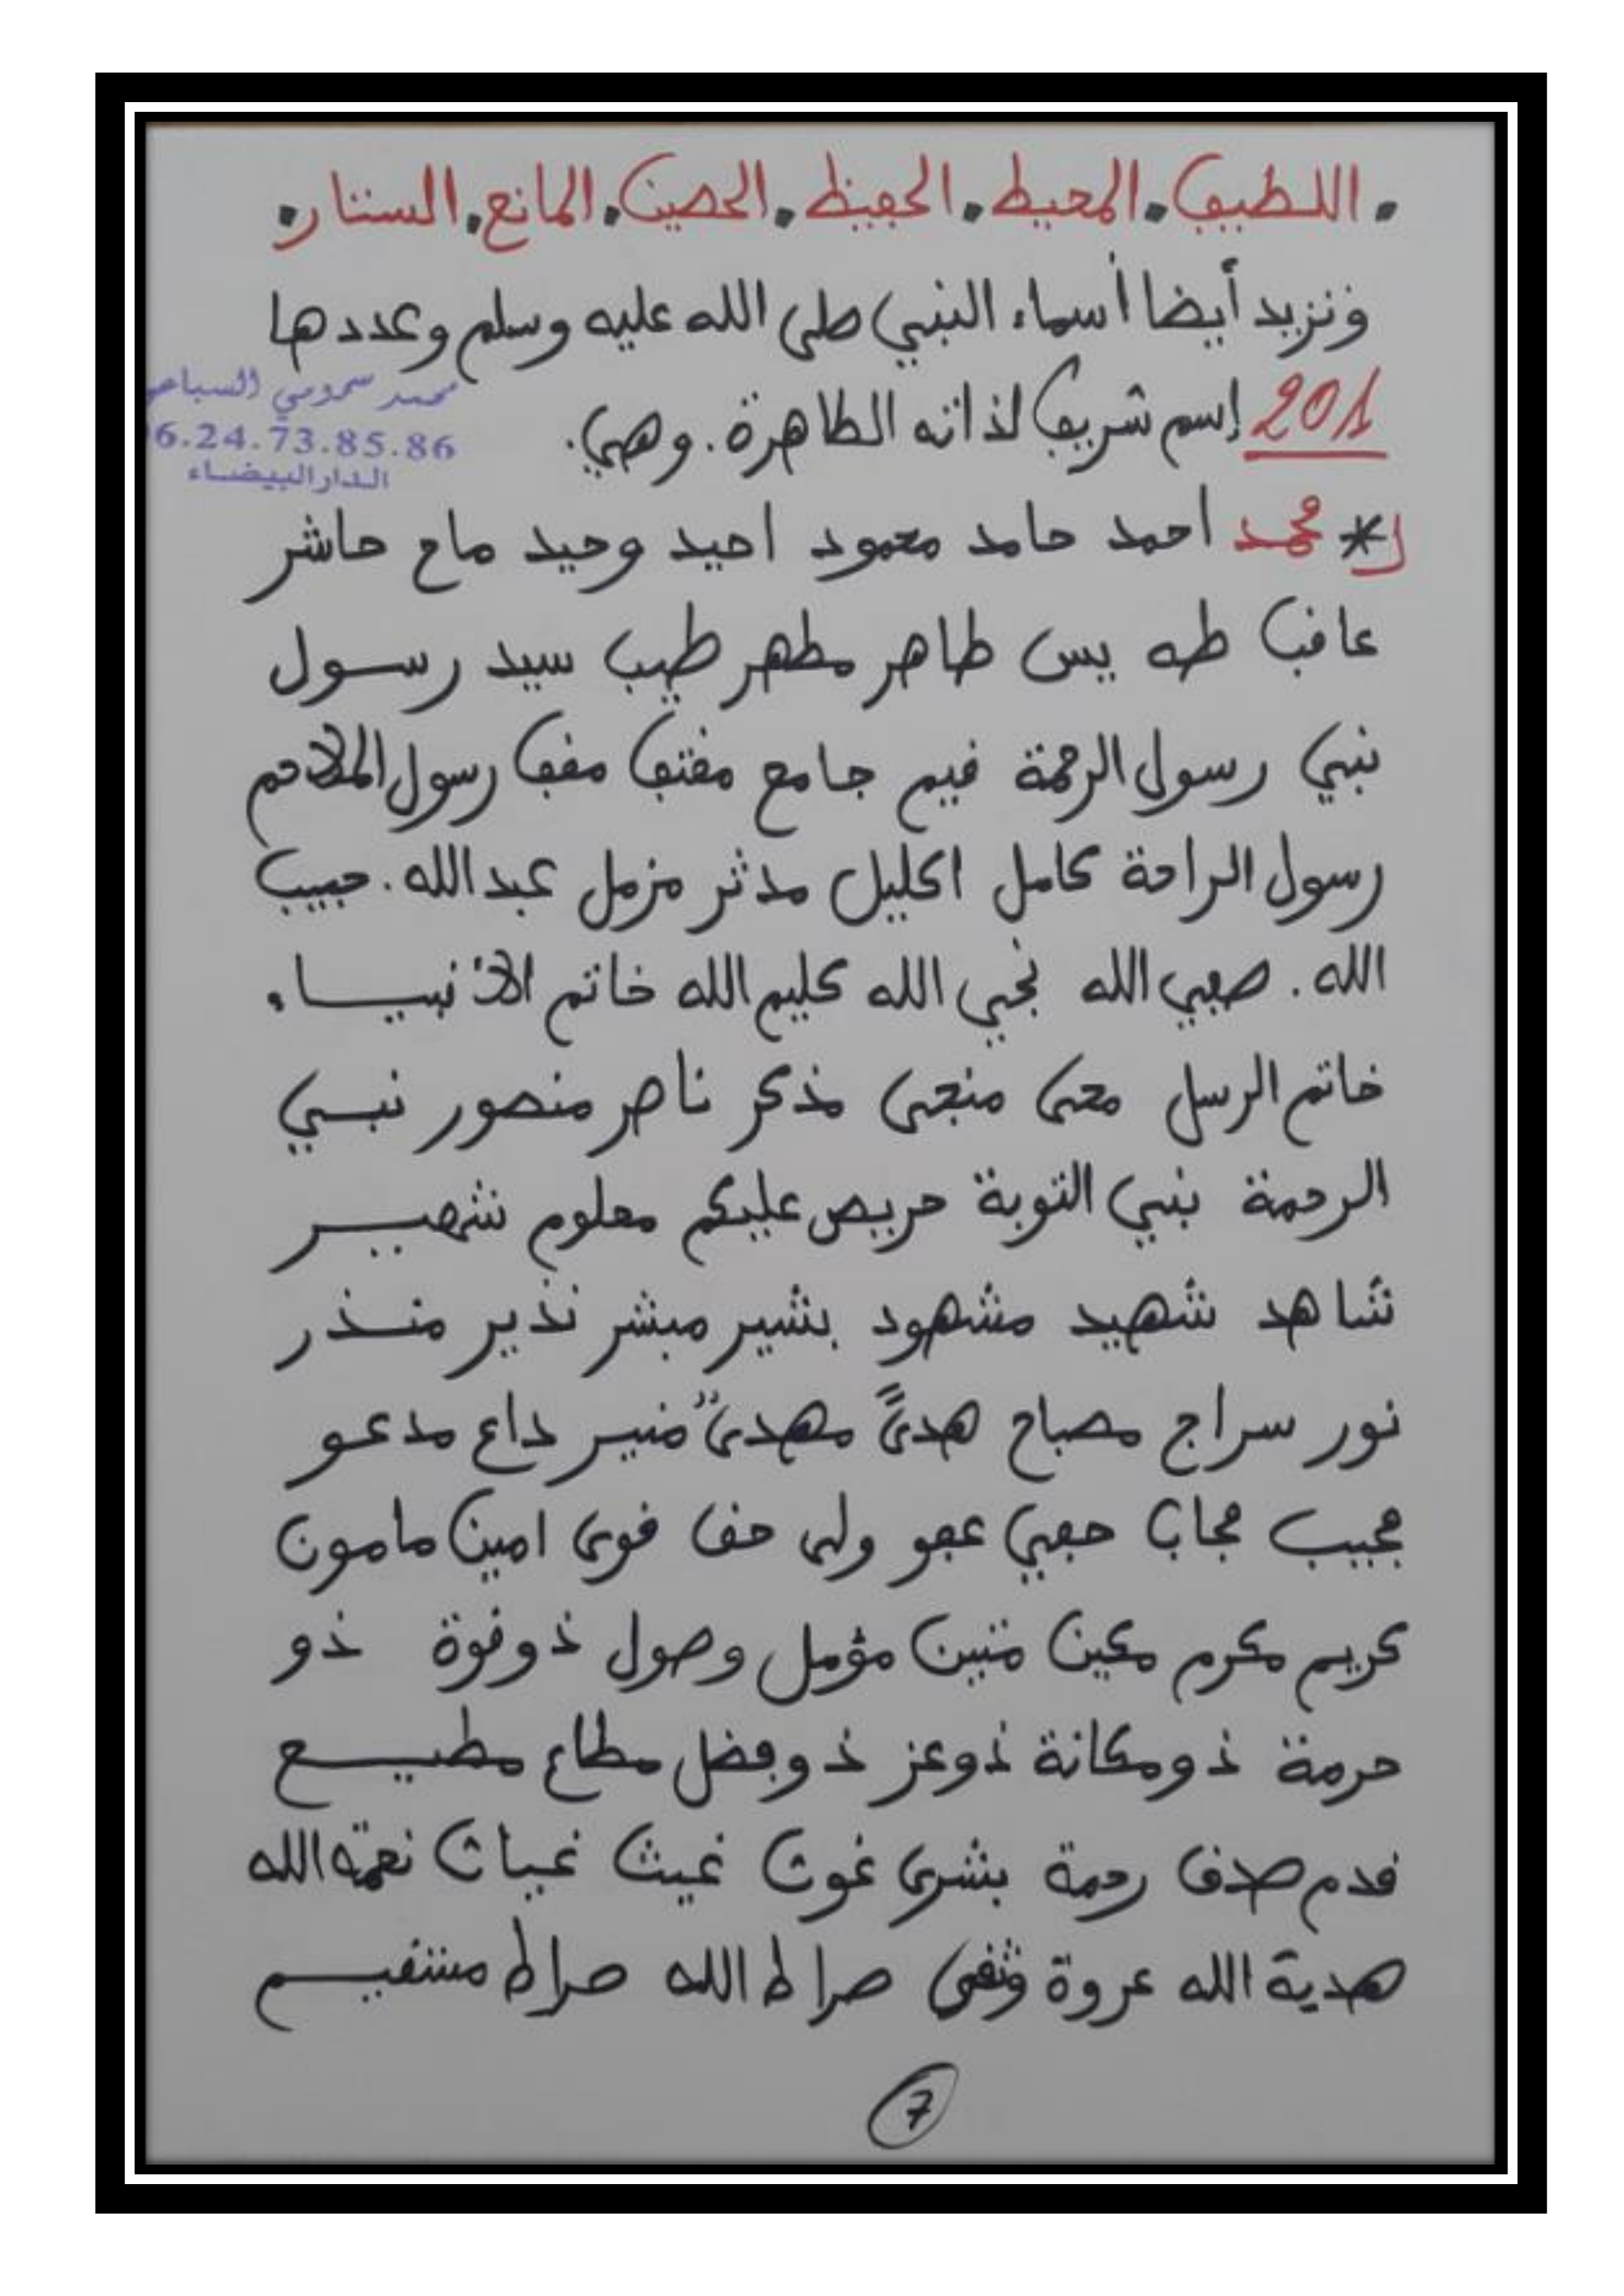 . اللطيف . المحيط . الحفيظ . الحصين . المانع . الستار .
ونزيد أيضا أسماء النبي صلى الله عليه وسلم وعددها
201 إسم شريف لذاته الطاهرة . وهي .
محمد سمومي السباعي
6.24.73.85.86
الدار البيضاء
* محمد احمد حامد محمود احيد وحيد ماح حاشر
عاقب طه يس طاهر مطهر طيب سيد رسول
نبي رسول الرحمة قيم جامع مقتف مقف رسول الملاحم
رسول الراحة كامل اكليل مدثر مزمل عبد الله . حبيب
الله . صفي الله نجي الله كليم الله خاتم الانبياء
خاتم الرسل محى منجى مذكر ناصر منصور نبي
الرحمة نبي التوبة حريص عليكم معلوم شهير
شاهد شهيد مشهود بشير مبشر نذير منذر
نور سراج مصباح هدىً مهدى منير داع مدعو
مجيب مجاب حفي عفو ولى حق قوى امين مامون
كريم مكرم مكين متين مبين مؤمل وصول ذو قوة ذو
حرمة ذو مكانة ذو عز ذو فضل مطاع مطيع
قدم صدق رحمة بشرى غوث غيث غياث نعمة الله
هدية الله عروة وثقى صراط الله صراط مستقيم
7